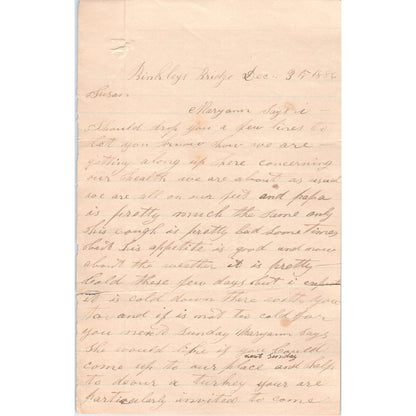 Hinkleys Bridge Dec. 3rd 1886
Susan
Maryann Says i
Should drop you a few lines to
let you know how we are
getting along up here concerning
our health we are about as usual
we are all on our feet and papa
is pretty much the same only
his cough is pretty bad sometimes
but his appetite is good and now
about the weather it is pretty
Cold these few days but i
it is cold down there with you
too and if is not too cold for
you next Sunday Maryann Says
She would like if you Could
next Sunday
come up to our place and help
to devour a turkey your are
particularly invited to come